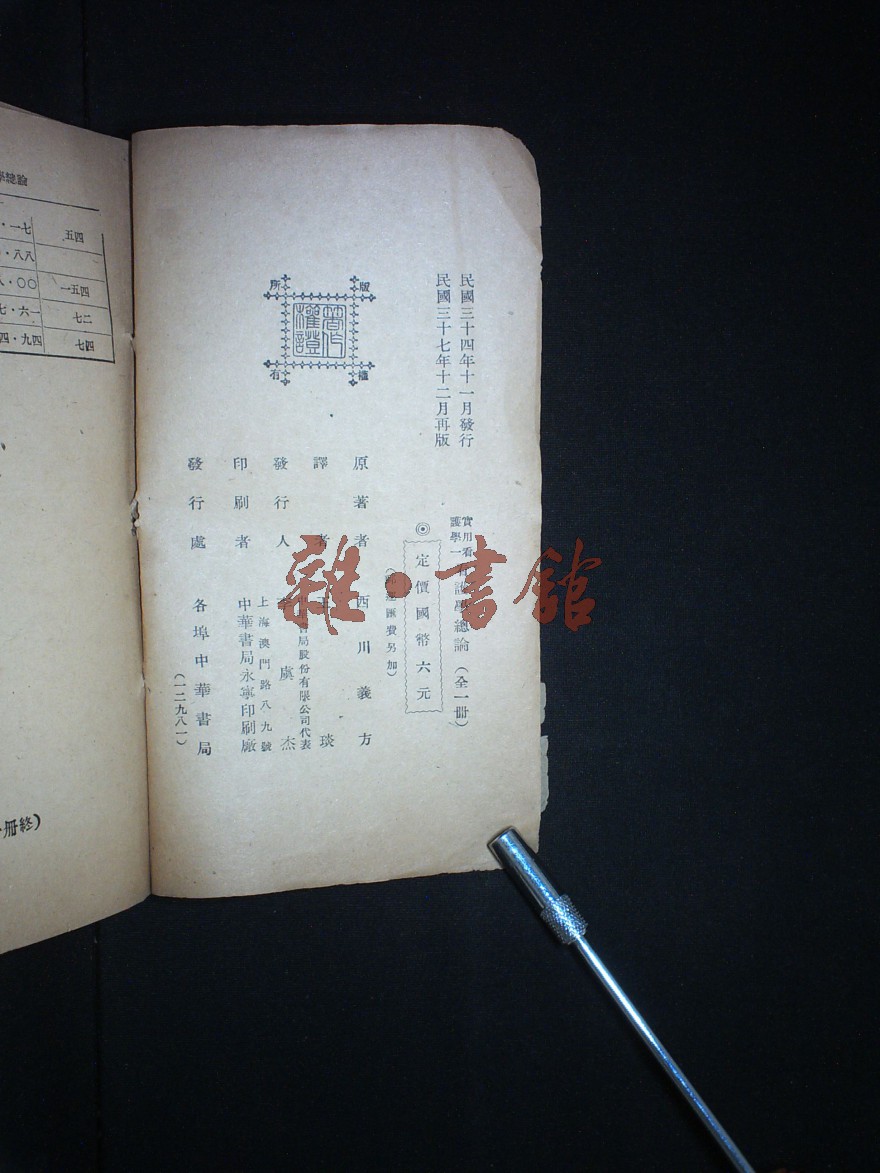 民國三十四年十一月發行
民國三十七年十二月再版
版權所有
著作權證
實用看
護學一
護學總論（全一冊）
◎定價國幣六元
匯費另加）
原著者 西川義方
譯者 琰
發行人 李虞杰
中華書局股份有限公司代表
印刷者 中華書局永寧印刷廠
上海澳門路八九號
發行處 各埠中華書局
（一二九八一）
學總論
·一七 四五
·八八
·〇〇 四五一
七·六一 二七
四·九四 四七
冊終）
雜·書館